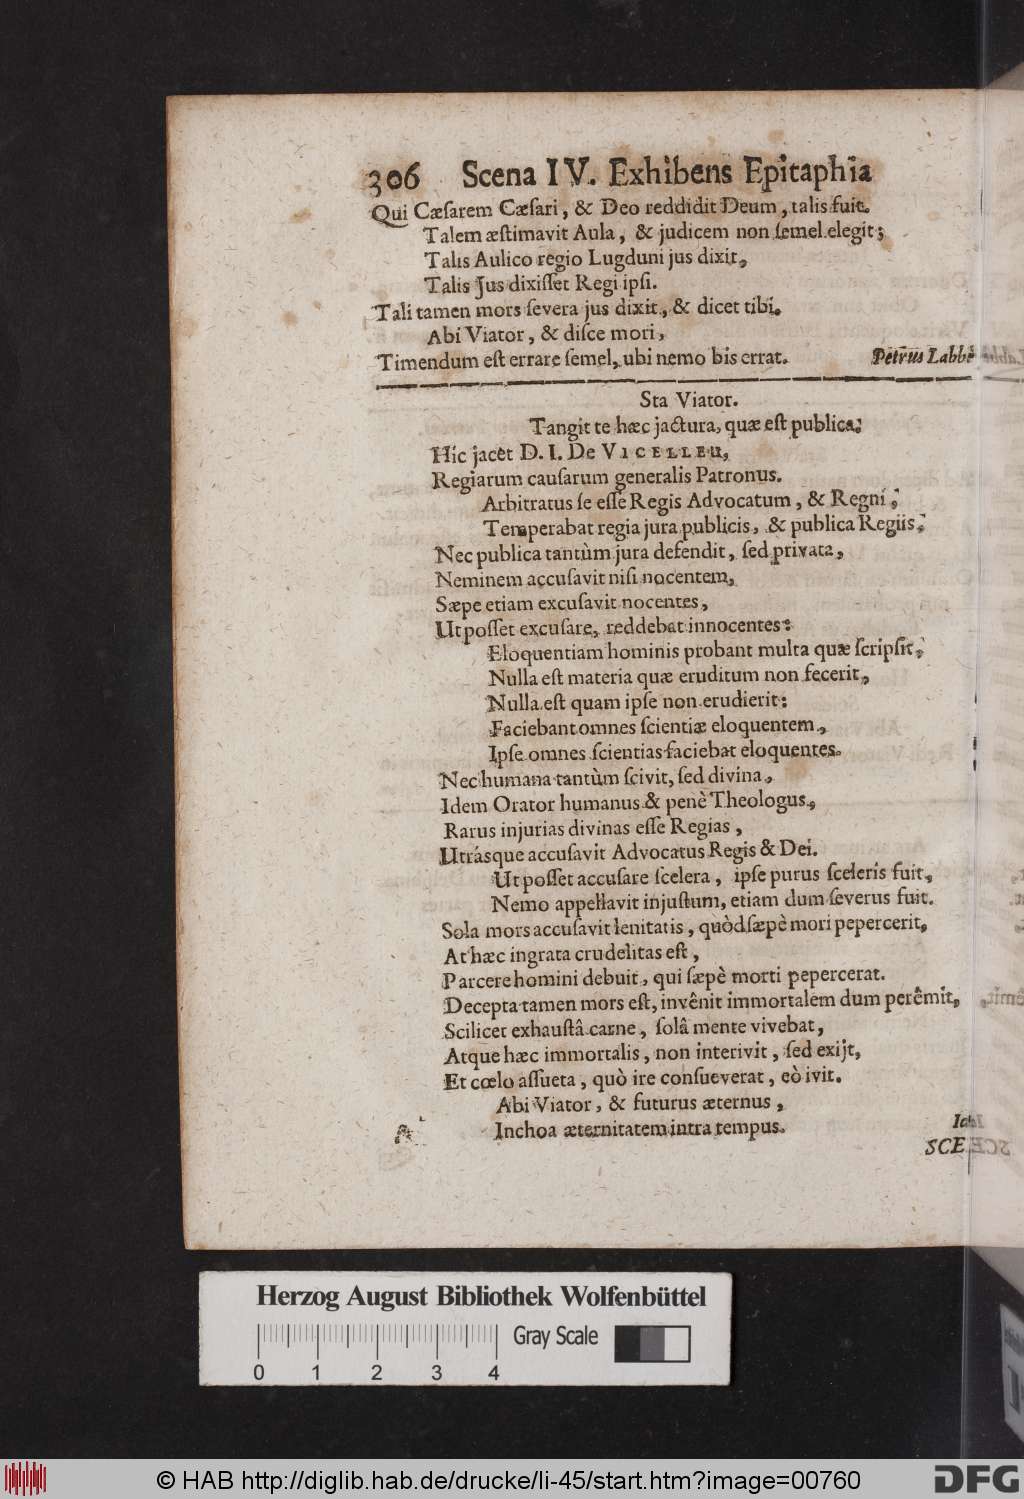 306 Scena IV. Exhibens Epitaphia
Qui Cæsarem Cæsari, & Deo reddidit Deum, talis fuit.
Talem æstimavit Aula, & judicem non semel elegit;
Talis Aulico regio Lugduni jus dixit,
Talis Jus dixisset Regi ipsi.
Tali tamen mors severa jus dixit, & dicet tibi.
Abi Viator, & disce mori,
Timendum est errare semel, ubi nemo bis errat. Petrus Labbè
Sta Viator.
Tangit te hæc jactura, quæ est publica:
Hic jacet D. I. De VICELLEU,
Regiarum causarum generalis Patronus.
Arbitratus se esse Regis Advocatum, & Regni;
Temperabat regia jura publicis, & publica Regiis;
Nec publica tantùm jura defendit, sed privata,
Neminem accusavit nisi nocentem,
Sæpe etiam excusavit nocentes,
Ut posset excusare, reddebat innocentes:
Eloquentiam hominis probant multa quæ scripsit;
Nulla est materia quæ eruditum non fecerit,
Nulla est quam ipse non erudierit:
Faciebant omnes scientiæ eloquentem,
Ipse omnes scientias faciebat eloquentes.
Nec humana tantùm scivit, sed divina,
Idem Orator humanus & penè Theologus,
Rarus injurias divinas esse Regias,
Utrásque accusavit Advocatus Regis & Dei.
Ut posset accusare scelera, ipse purus sceleris fuit,
Nemo appellavit injustum, etiam dum severus fuit.
Sola mors accusavit lenitatis, quòd sæpè mori pepercerit,
At hæc ingrata crudelitas est,
Parcere homini debuit, qui sæpè morti pepercerat.
Decepta tamen mors est, invênit immortalem dum perêmit,
Scilicet exhaustâ carne, solâ mente vivebat,
Atque hæc immortalis, non interivit, sed exijt,
Et cœlo assueta, quò ire consueverat, eò ivit.
Abi Viator, & futurus æternus,
Inchoa æternitatem intra tempus.
SCE
Herzog August Bibliothek Wolfenbüttel
Gray Scale
0 1 2 3 4
© HAB http://diglib.hab.de/drucke/li-45/start.htm?image=00760
DFG